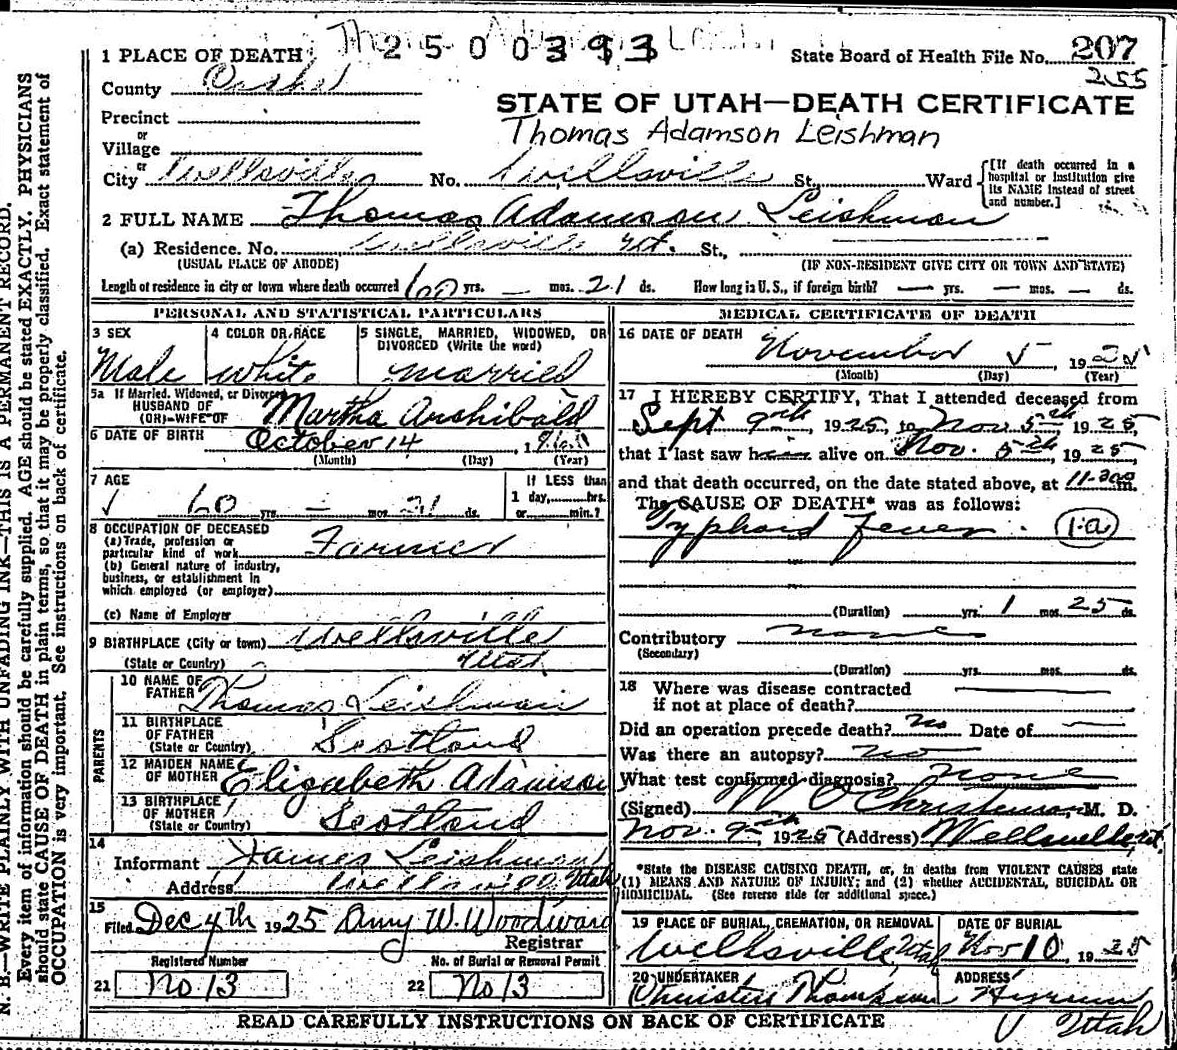 2500393
1 PLACE OF DEATH
State Board of Health File No. 207
255
County
STATE OF UTAH—DEATH CERTIFICATE
Precinct
Thomas Adamson Leishman
or
Village
or
City Wellsville No. Wellsville St. Ward
[If death occurred in a hospital or institution give its NAME instead of street and number.]
2 FULL NAME Thomas Adamson Leishman
(a) Residence. No. Wellsville Ut. St.,
(USUAL PLACE OF ABODE) (IF NON-RESIDENT GIVE CITY OR TOWN AND STATE)
Length of residence in city or town where death occurred 60 yrs. — mos. 21 ds. How long in U.S., if foreign birth? — yrs. — mos. — ds.
PERSONAL AND STATISTICAL PARTICULARS
3 SEX Male
4 COLOR OR RACE White
5 SINGLE, MARRIED, WIDOWED, OR DIVORCED (Write the word) married
5a If Married, Widowed, or Divorced
HUSBAND OF
(OR) WIFE OF Martha Archibald
6 DATE OF BIRTH October 14
(Month) (Day) (Year)
7 AGE 60 yrs. — mos. 21 ds.
If LESS than
1 day, hrs.
or min.?
8 OCCUPATION OF DECEASED
(a) Trade, profession or
particular kind of work Farmer
(b) General nature of industry,
business, or establishment in
which employed (or employer)
(c) Name of Employer
9 BIRTHPLACE (City or town) Wellsville
(State or Country) Utah
PARENTS
10 NAME OF FATHER Thomas Leishman
11 BIRTHPLACE OF FATHER (State or Country) Scotland
12 MAIDEN NAME OF MOTHER Elizabeth Adamson
13 BIRTHPLACE OF MOTHER (State or Country) Scotland
14
Informant James Leishman
Address Wellsville Utah
15
Filed Dec 4th 1925 Amy W. Woodward
Registrar
Registered Number
21 No 13
No. of Burial or Removal Permit
22 No 13
MEDICAL CERTIFICATE OF DEATH
16 DATE OF DEATH
November 5 1925
(Month) (Day) (Year)
17 I HEREBY CERTIFY, That I attended deceased from
Sept 9th, 1925, to Nov 5th, 1925,
that I last saw him alive on Nov. 5th, 1925,
and that death occurred, on the date stated above, at
The CAUSE OF DEATH* was as follows:
Typhoid Fever. 1-a
(Duration) yrs. 1 mos. 25 ds.
Contributory none
(Secondary)
(Duration) yrs. mos. ds.
18 Where was disease contracted
if not at place of death?
Did an operation precede death? no Date of —
Was there an autopsy? no
What test confirmed diagnosis? none
(Signed) W O Christensen, M. D.
Nov. 9th, 1925 (Address) Wellsville, Ut.
*State the DISEASE CAUSING DEATH, or, in deaths from VIOLENT CAUSES state
(1) MEANS AND NATURE OF INJURY; and (2) whether ACCIDENTAL, SUICIDAL OR
HOMICIDAL. (See reverse side for additional space.)
19 PLACE OF BURIAL, CREMATION, OR REMOVAL
Wellsville Utah
DATE OF BURIAL
Nov 10, 1925
20 UNDERTAKER
Thompson
ADDRESS
Hyrum
Utah
READ CAREFULLY INSTRUCTIONS ON BACK OF CERTIFICATE
N. B.—WRITE PLAINLY WITH UNFADING INK—THIS IS A PERMANENT RECORD.
Every item of information should be carefully supplied. AGE should be stated EXACTLY. PHYSICIANS
should state CAUSE OF DEATH in plain terms, so that it may be properly classified. Exact statement of
OCCUPATION is very important. See instructions on back of certificate.